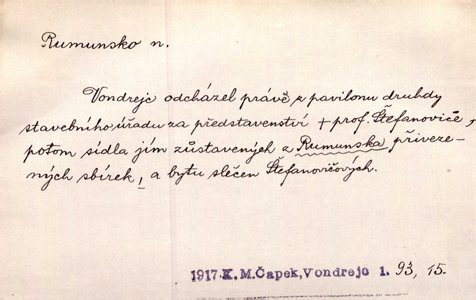 Rumunsko n.
Vondrejc odcházel právě z pavilonu druhdy
stavebního úřadu za představenství + prof. Štefanoviče,
potom sídla jím zůstavených z Rumunska přiveze-
ných sbírek, a bytu slečen Štefanovičových.
1917 K.M.Čapek, Vondrejc 1. 93, 15.